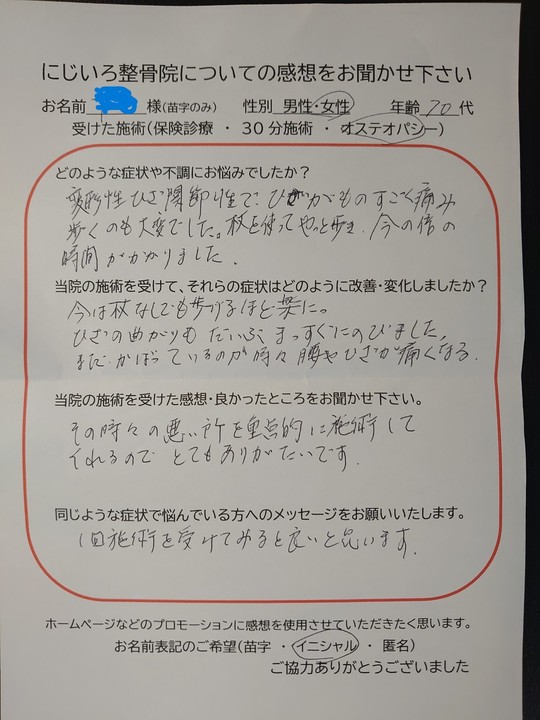 にじいろ整骨院についての感想をお聞かせ下さい
お名前 様(苗字のみ) 性別 男性・女性 年齢 70代
受けた施術(保険診療 ・ 30分施術 ・ オステオパシー)
どのような症状や不調にお悩みでしたか?
変形性ひざ関節症で、ひざがものすごく痛み
歩くのも大変でした。杖を使ってやっと歩き、今の倍の
時間がかかりました。
当院の施術を受けて、それらの症状はどのように改善・変化しましたか?
今は杖なしでも歩けるほど楽に。
ひざの曲がりもだいぶまっすぐにのびました。
まだかばっているのか時々腰やひざが痛くなる。
当院の施術を受けた感想・良かったところをお聞かせ下さい。
その時々の悪い所を重点的に施術して
くれるのでとてもありがたいです。
同じような症状で悩んでいる方へのメッセージをお願いいたします。
1回施術を受けてみると良いと思います。
ホームページなどのプロモーションに感想を使用させていただきたく思います。
お名前表記のご希望(苗字 ・ イニシャル ・ 匿名)
ご協力ありがとうございました